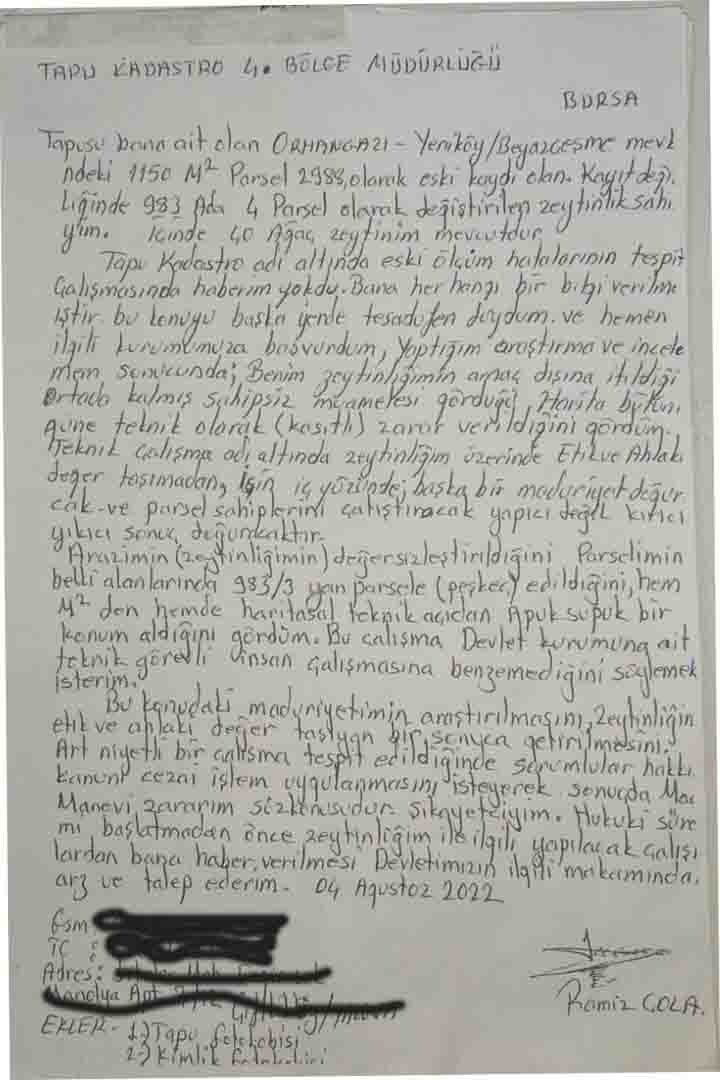 TAPU KADASTRO 4. BÖLGE MÜDÜRLÜĞÜ
BURSA
Tapusu bana ait olan ORHANGAZI - Yeniköy/Beyazçeşme mevk
ndeki 1150 M² Parsel 2988, olarak eski kaydı olan. Kayıt deği.
liğinde 983 Ada 4 Parsel olarak değiştirilen zeytinlik sahi
yim. İçinde 40 Ağaç zeytinim mevcutdur
Tapu Kadastro adı altında eski ölçüm hatalarının tespit
çalışmasında haberim yokdu. Bana her hangi bir bilgi verilme
iştir. bu konuyu başka yerde tesadüfen duydum. ve hemen
ilgili kurumumuza başvurdum, Yaptığım araştırma ve incele
mem sonucunda; Benim zeytinliğimin amaç dışına itildiği
Ortada kalmış sahipsiz muamelesi gördüğü, Harita bütünü
güne teknik olarak (kasıtlı) zarar verildiğini gördüm.
Teknik çalışma adı altında zeytinliğim üzerinde Etik ve Ahlaki
değer taşımadan, işin iç yüzünde; başka bir maduriyet değur
cak-ve parsel sahiplerini çatıştıracak yapıcı değil kırıcı
yıkıcı sonuç doğuracaktır.
Arazimin (zeytinliğimin) değersizleştirildiğini Parselimin
belli alanlarında 983/3 yan parsele (peşkeç) edildiğini, hem
M² den hemde haritasal teknik açıdan Apuk supuk bir
konum aldığını gördüm. Bu çalışma Devlet kurumuna ait
teknik görevli insan çalışmasına benzemediğini söylemek
isterim.
Bu konudaki maduriyetimin araştırılmasını, Zeytinliğin
etik ve ahlaki değer taşıyan bir sonuca getirilmesini.
Art niyetli bir çalışma tespit edildiğinde sorumlular hakkı.
kanuni cezai işlem uygulanmasını isteyerek sonuçda Mad
Manevi zararım sözkonusudur. Şikayetçiyim. Hukuki süre
mi başlatmadan önce zeytinliğim ile ilgili yapılacak çalışı
lardan bana haber, verilmesi Devletimizin ilgili makamında.
arz ve talep ederim. 04 Agustoz 2022
Gsm
TC :
Adres:
Manolya Apt.
Ramiz ÇOLA.
EKLER- 1-) Tapu fotokobisi
2-) Kimlik fotokobisi